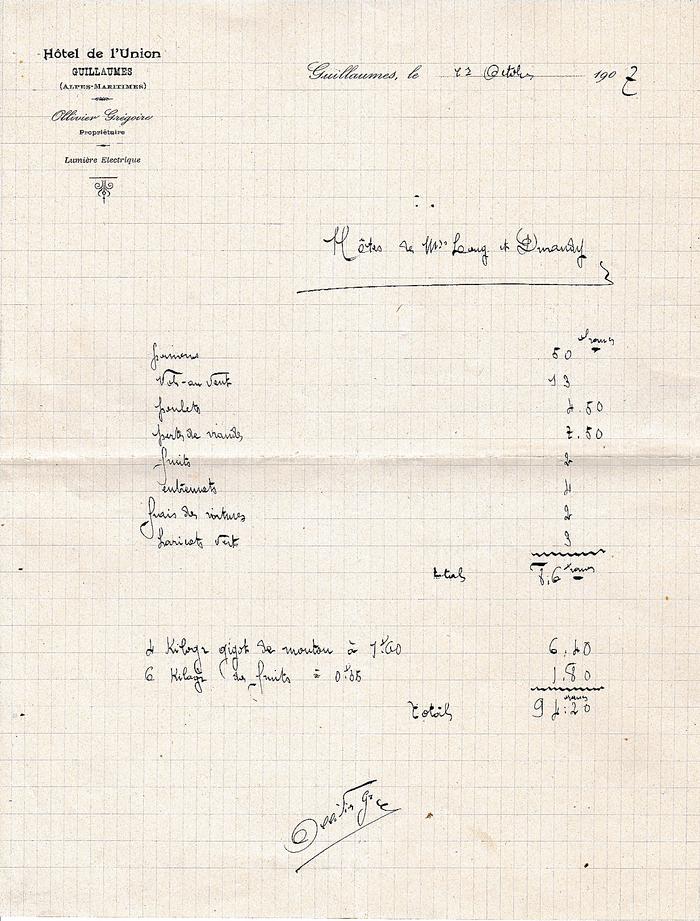 Hôtel de l'Union
GUILLAUMES
(ALPES-MARITIMES)
Ollivier Grégoire
Propriétaire
Lumière Electrique
Guillaumes, le 12 Octobre 1907
Hôtes de Mrs Long et Durandy
50 francs
Vol-au vent 13
poulets 4.50
de viande 7.50
fruits 2
entremets 4
frais des voitures 2
haricots vert 3
total 86 francs
4 Kilogr gigot de mouton à 1f60 6.40
6 Kilogr des fruits à 1.80
total 94.20 francs